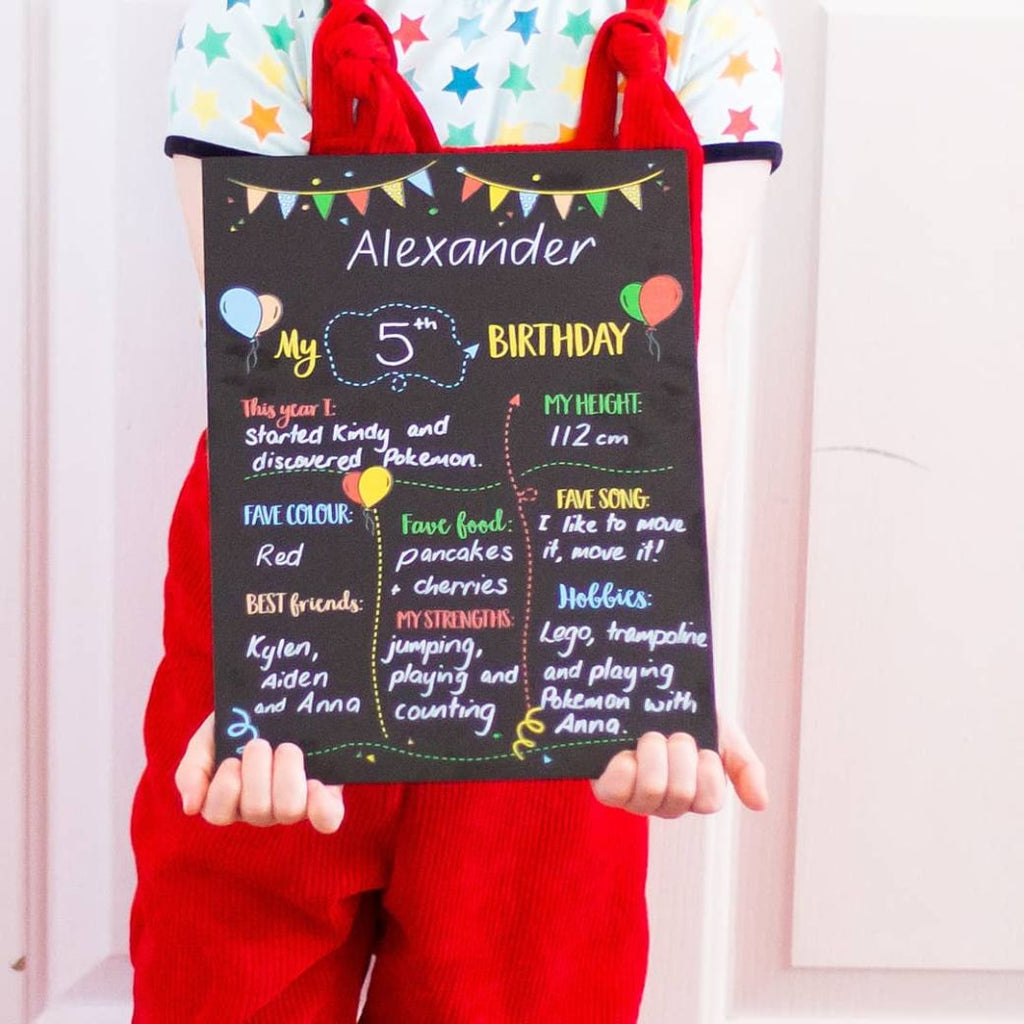 Alexander
My 5th BIRTHDAY
This year I:
Started Kindy and
discovered Pokemon.
MY HEIGHT:
112 cm
FAVE COLOUR:
Red
BEST friends:
Kylen,
Aiden
and Anna
Fave food:
pancakes
+ cherries
MY STRENGTHS:
jumping,
playing and
counting
FAVE SONG:
I like to move
it, move it!
Hobbies:
Lego, trampoline
and playing
Pokemon with
Anna.